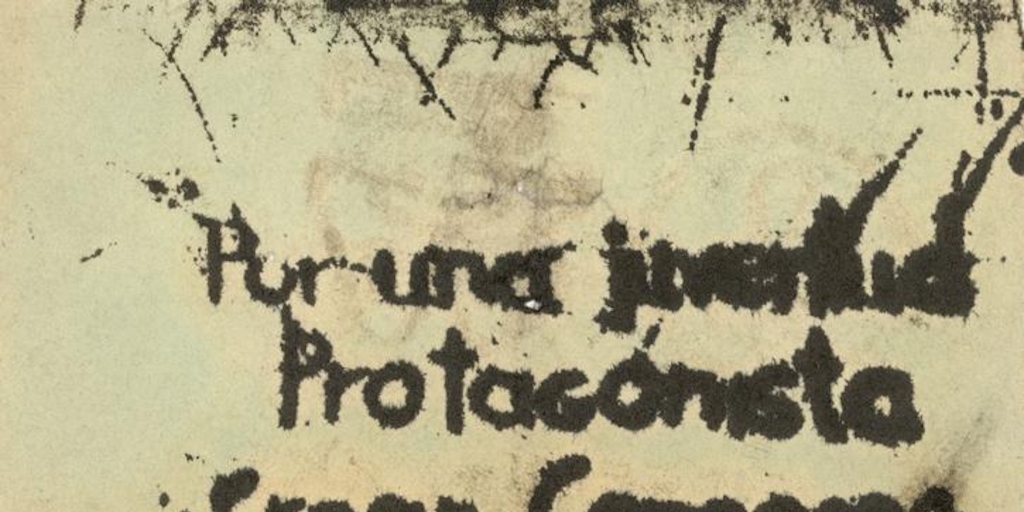 Por una juventud
Protagónista